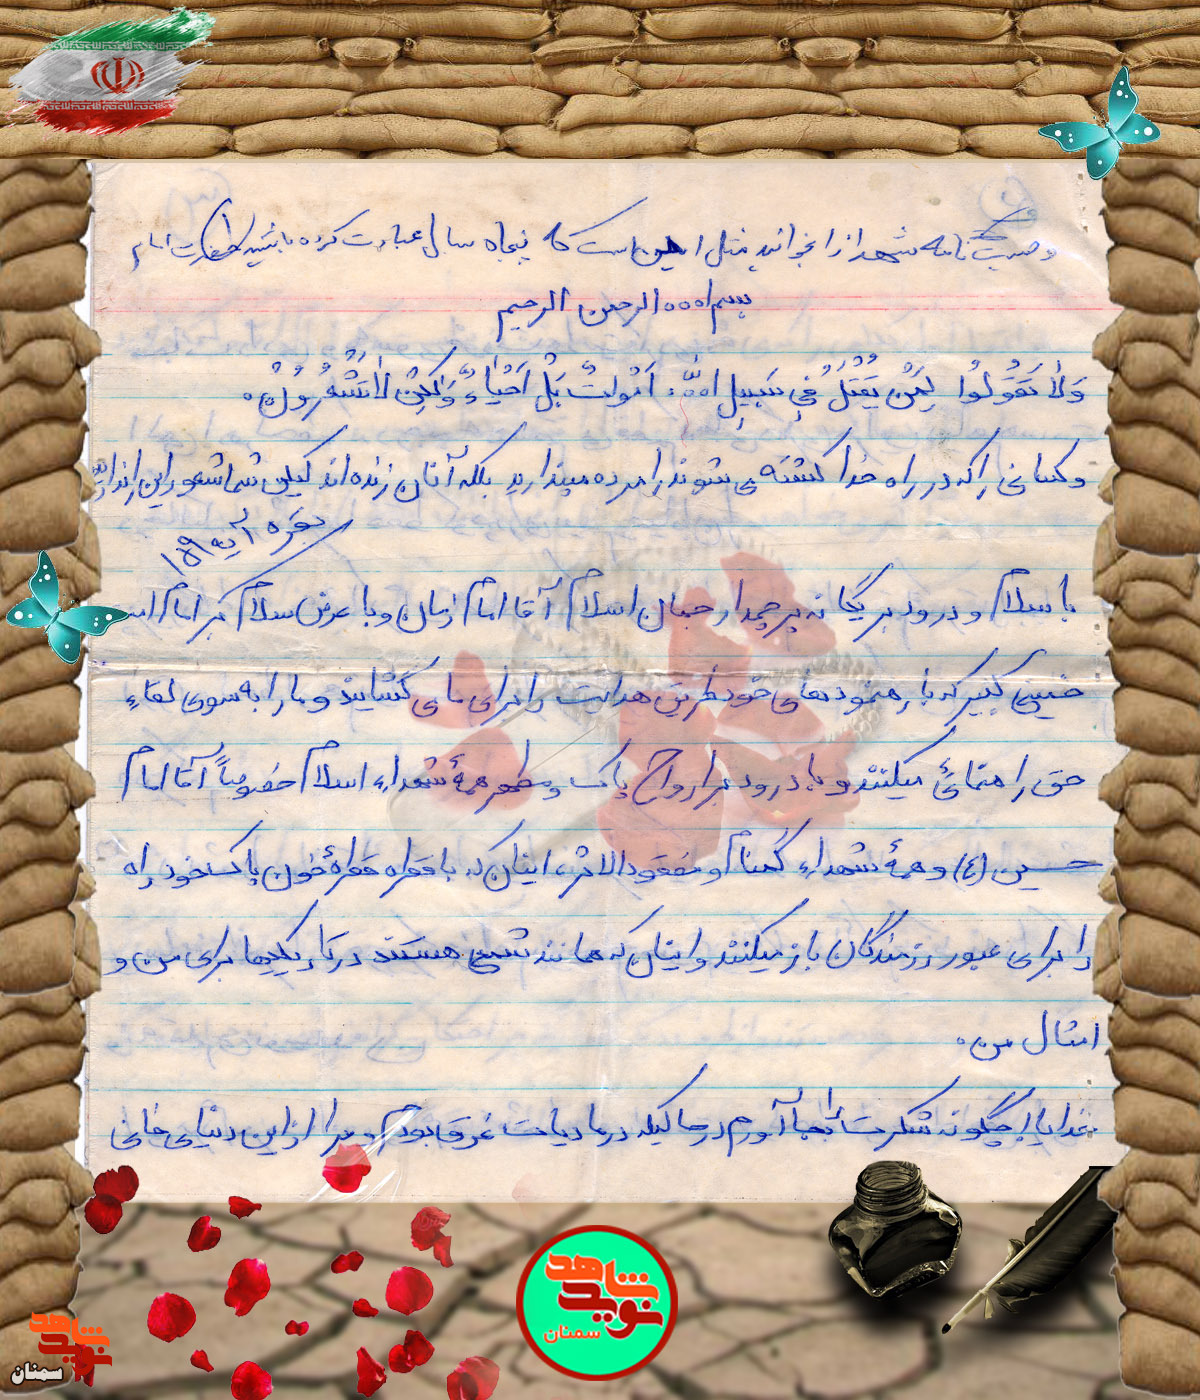 وصیت نامه شهدا را بخوانید مثل این است که پنجاه سال عبادت کرده باشید (حضرت امام
بسم الله الرحمن الرحیم
وَلاٰ تَقُولُوا لِمَنْ یُقْتَلُ فی سَبیلِ اللّٰه اَمْواتٌ بَلْ اَحْیاٰءٌ وَلٰکِنْ لاٰ تَشْعُرُونْ.
و کسانی را که در راه خدا کشته می شوند را مرده مپندارید بلکه آنان زنده اند لیکن شما شعور این را ندارید
بقره آیه
با سلام و درود بر یگانه پرچمدار جهان اسلام آقا امام زمان و با عرض سلام بر امام امت
خمینی کبیر که با رهنمودهای خود طریق هدایت را برای ما می گشایند و ما را به سوی لقاء
حق راهنمائی میکنند و با درود بر ارواح پاک و مطهر همهٔ شهداء اسلام خصوصاً آقا امام
حسین (ع) و همهٔ شهداء گمنام و مفقودالاثر، اینان که با قطره قطرهٔ خون پاک خود راه
را برای عبور رزمندگان باز میکنند و اینان که همانند شمعی هستند در تاریکیها برای من و
امثال من.
خدایا چگونه شکرت را بجا آورم در حالیکه در مادیات غرق بودم و مرا از این دنیای فانی
شاهد
نوید
سمنان
شاهد
نوید
سمنان